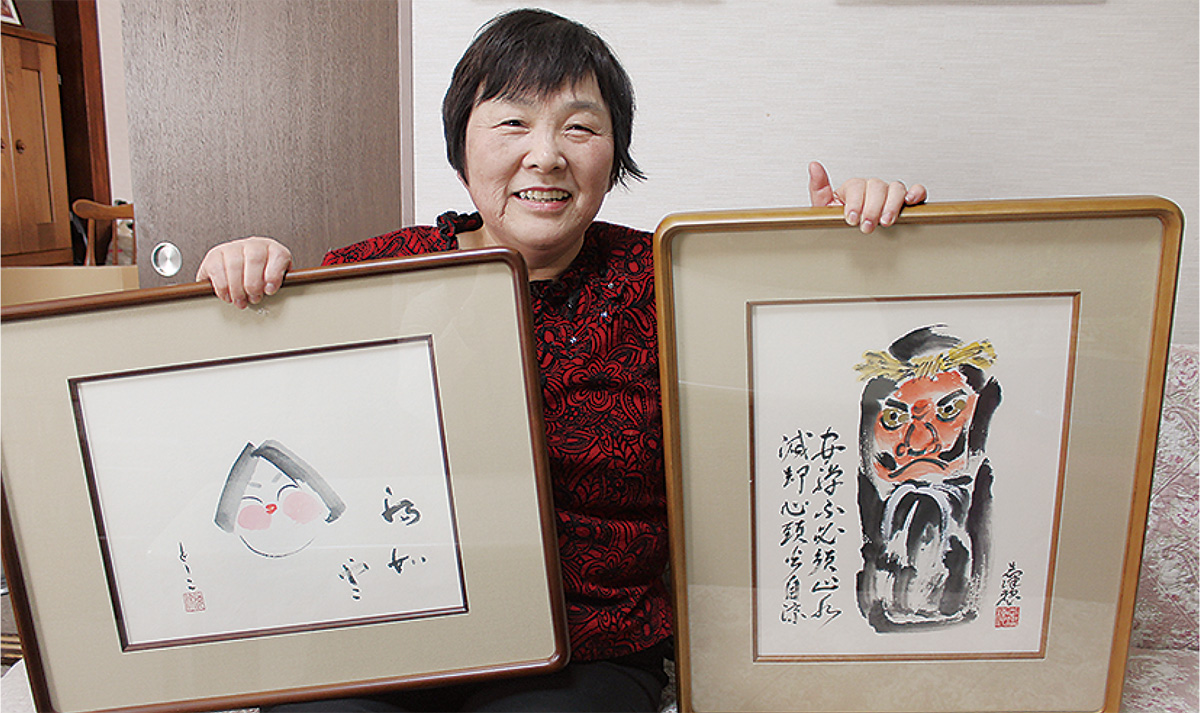 福如
雲
としこ
安禅不必須山水
滅却心頭火自涼